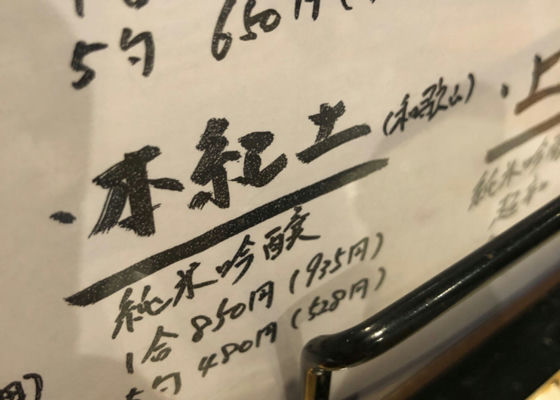 650円(
5勺
・木紅土(和歌山)
純米吟醸
1合 850円(935円)
5勺 480円(528円)
・上
純米吟醸
円)